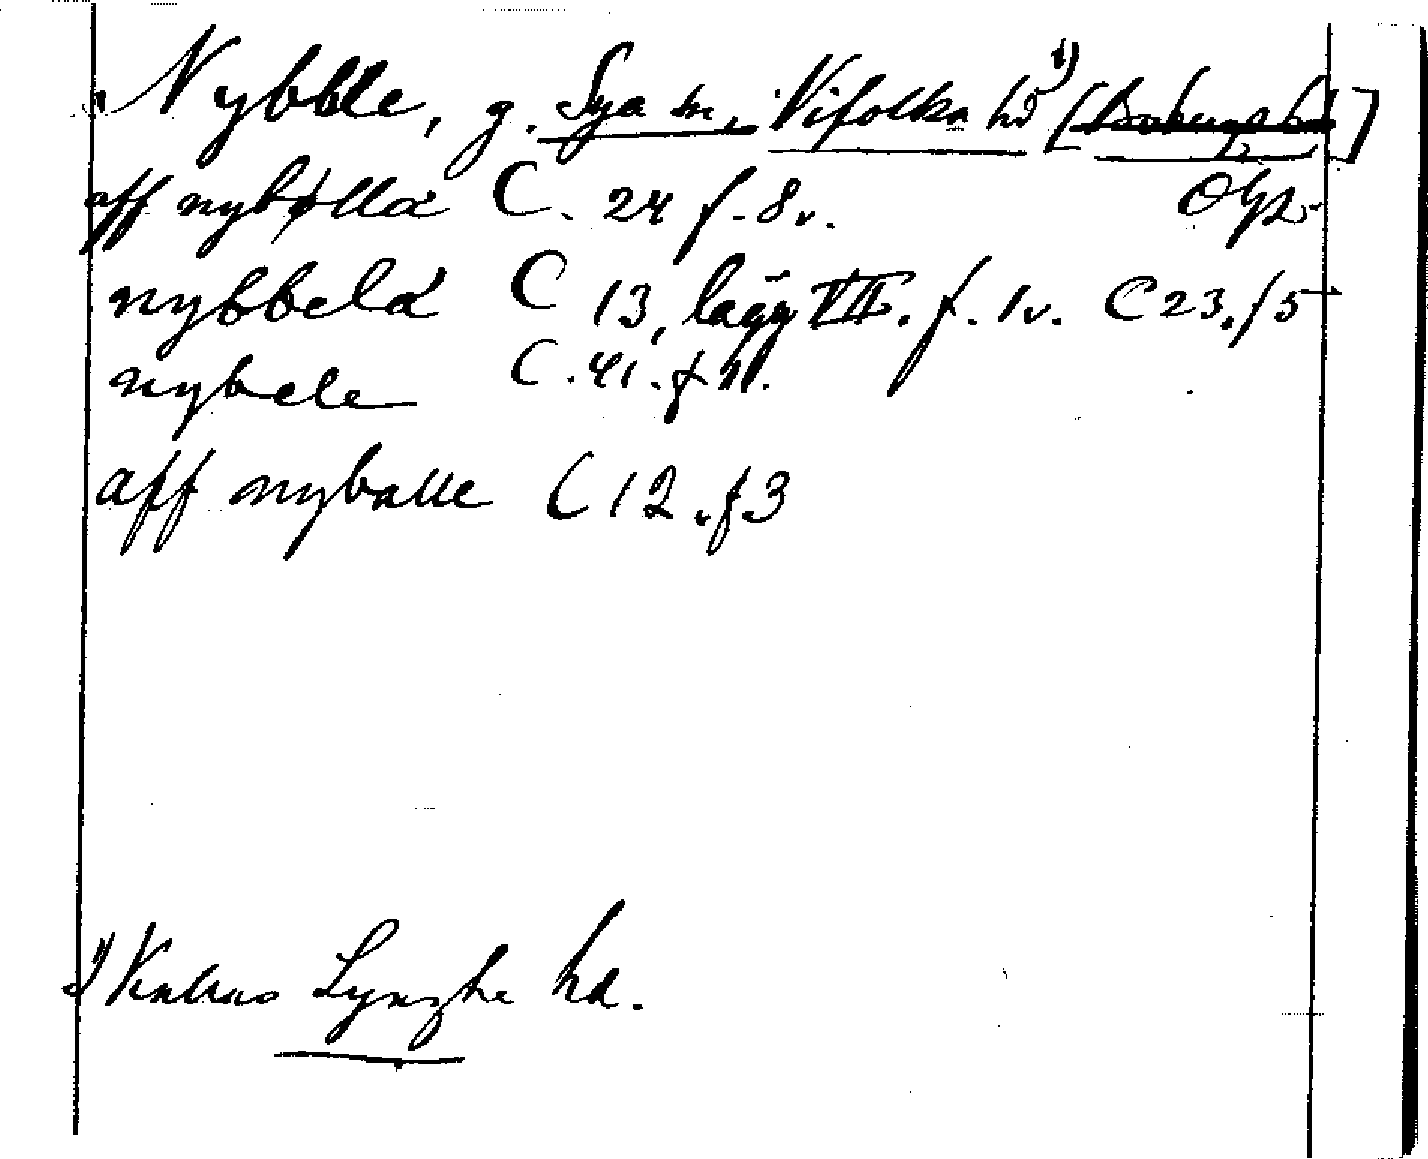 Nybble, g. Sya sn, Vifolka hd 1) [Bobergs hd]
aff nybølla C. 24 f. 8v. Ög.
nybbela C 13, lägg VII. f. 1v. C 23. f 5
nybele C. 41. f 11.
aff nyballe C 12. f. 3
1) Kallas Lysinghe hd.